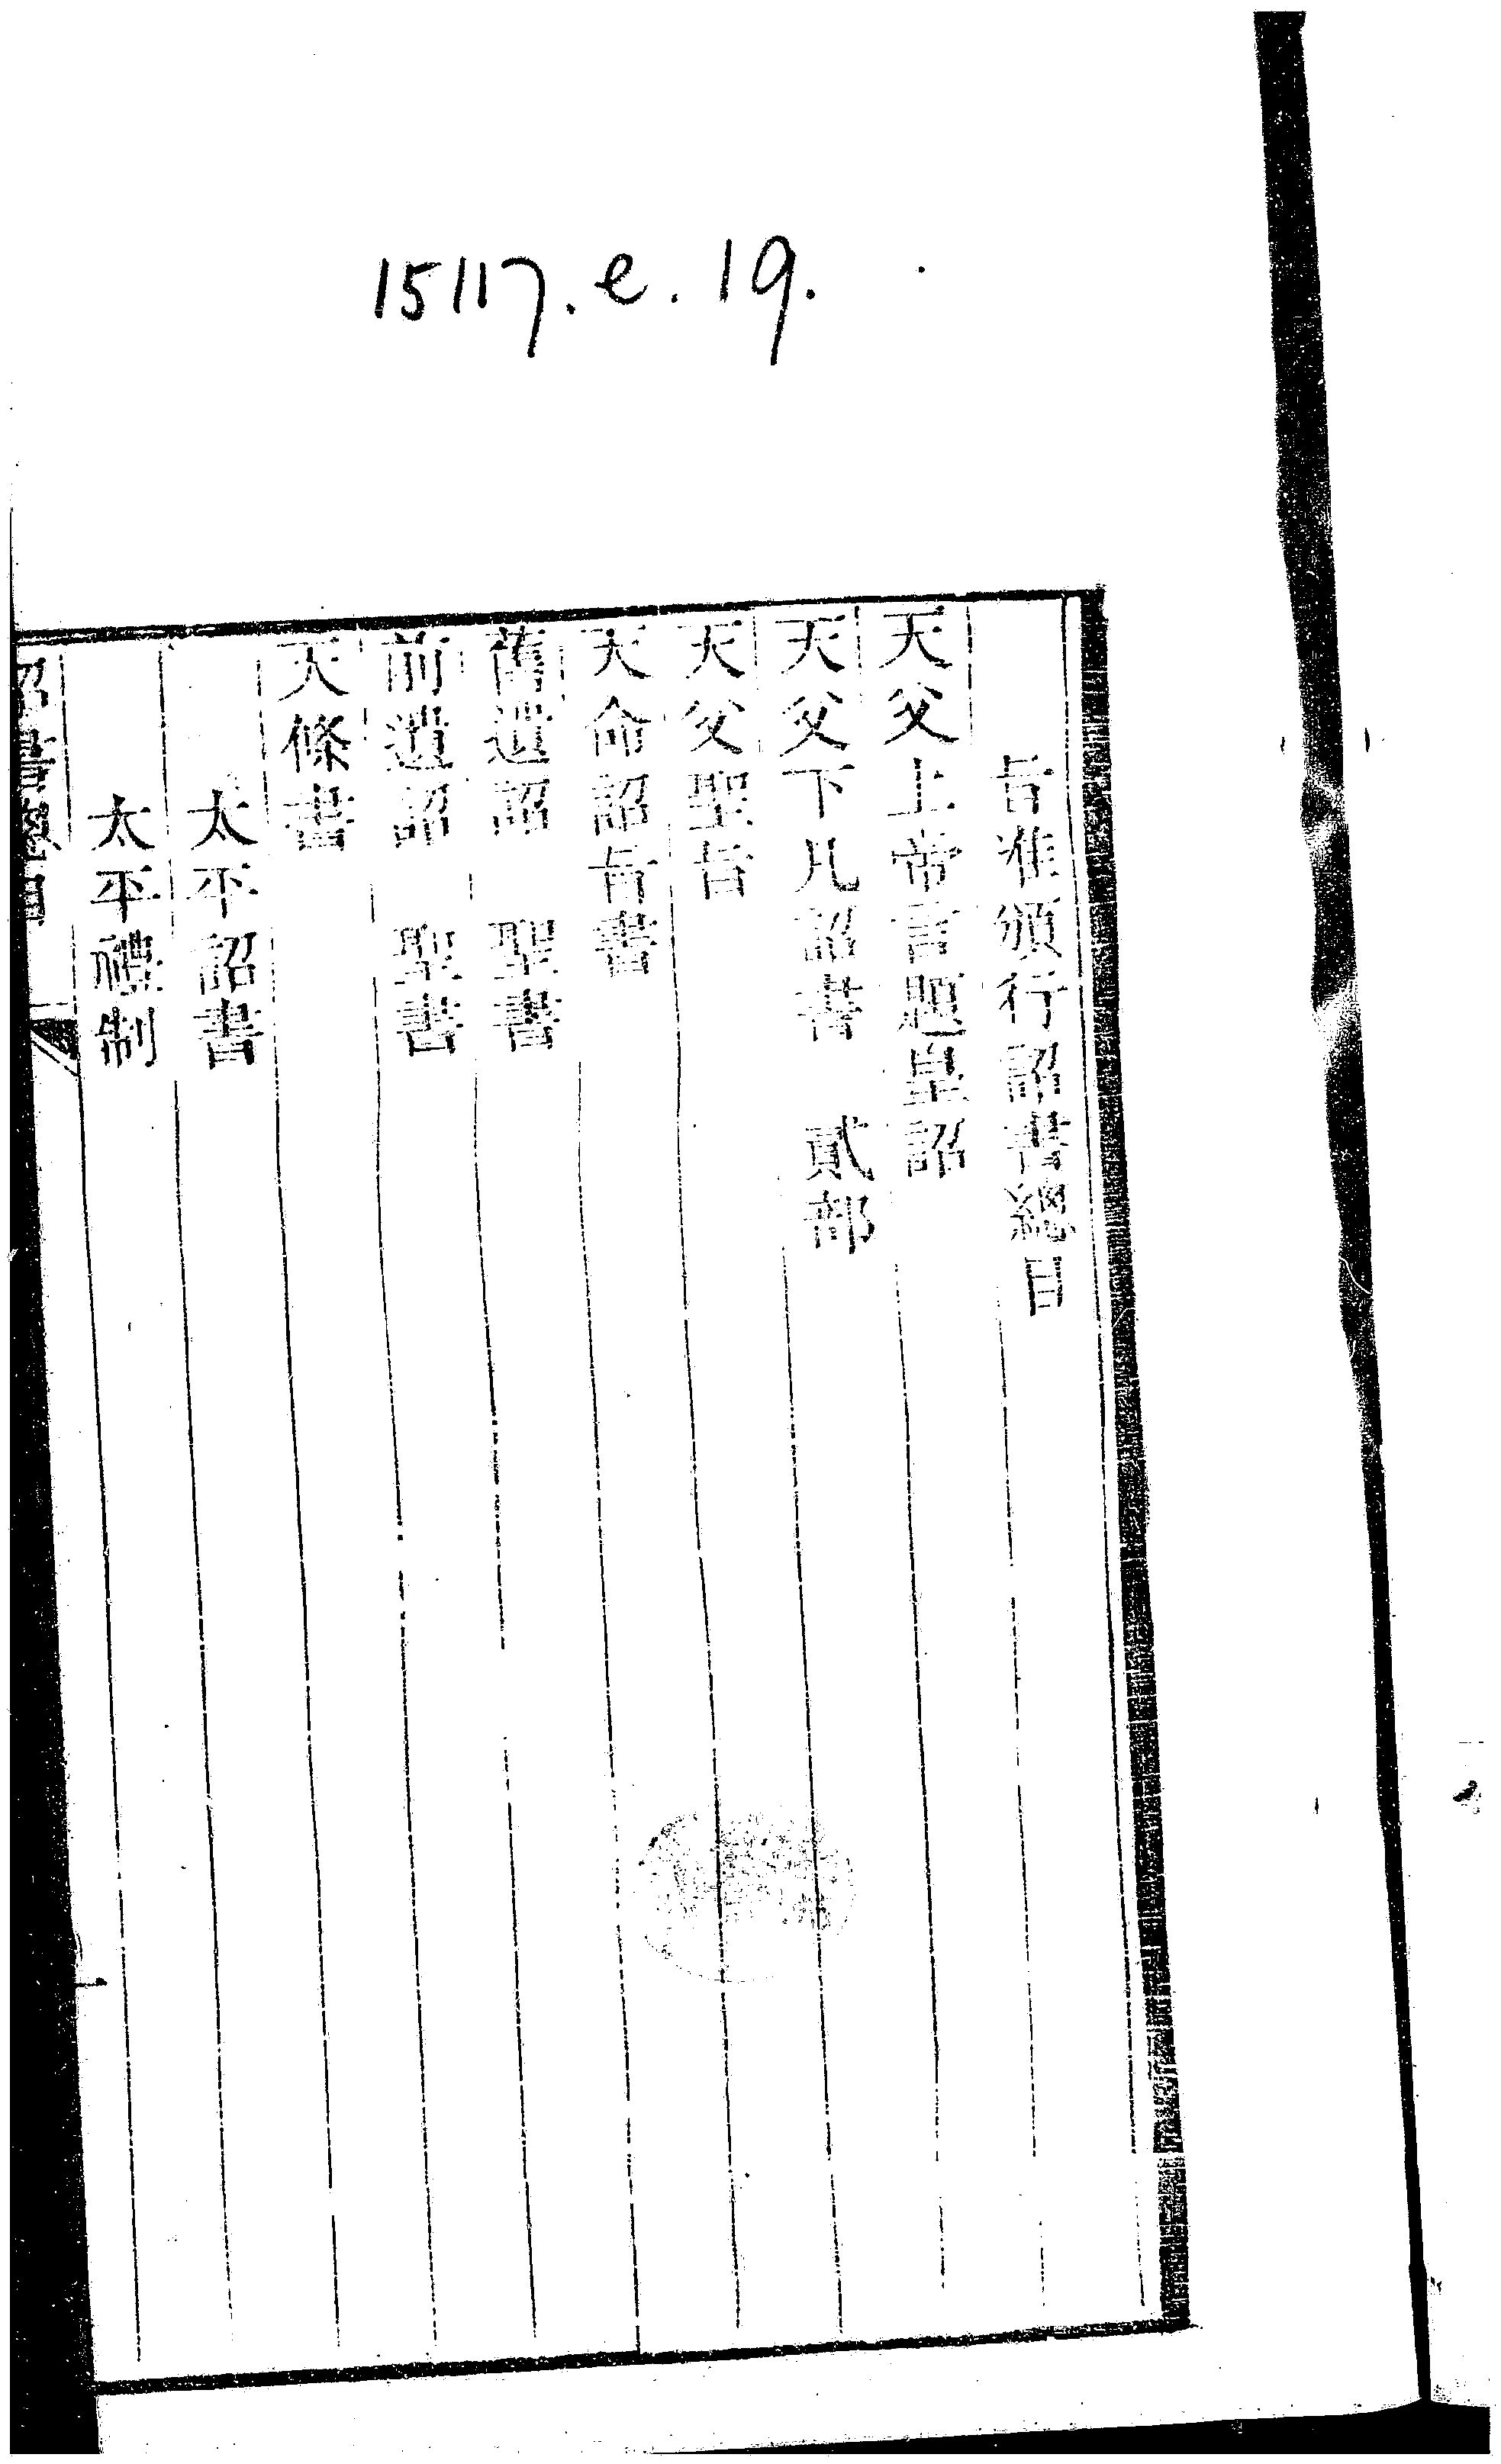 15117.e.19.
旨准頒行詔書總目
天父上帝言題皇詔
天父下凡詔書 貳部
天父聖旨
天命詔旨書
舊遺詔 聖書
前遺詔 聖書
天條書
太平詔書
太平禮制
詔書總目